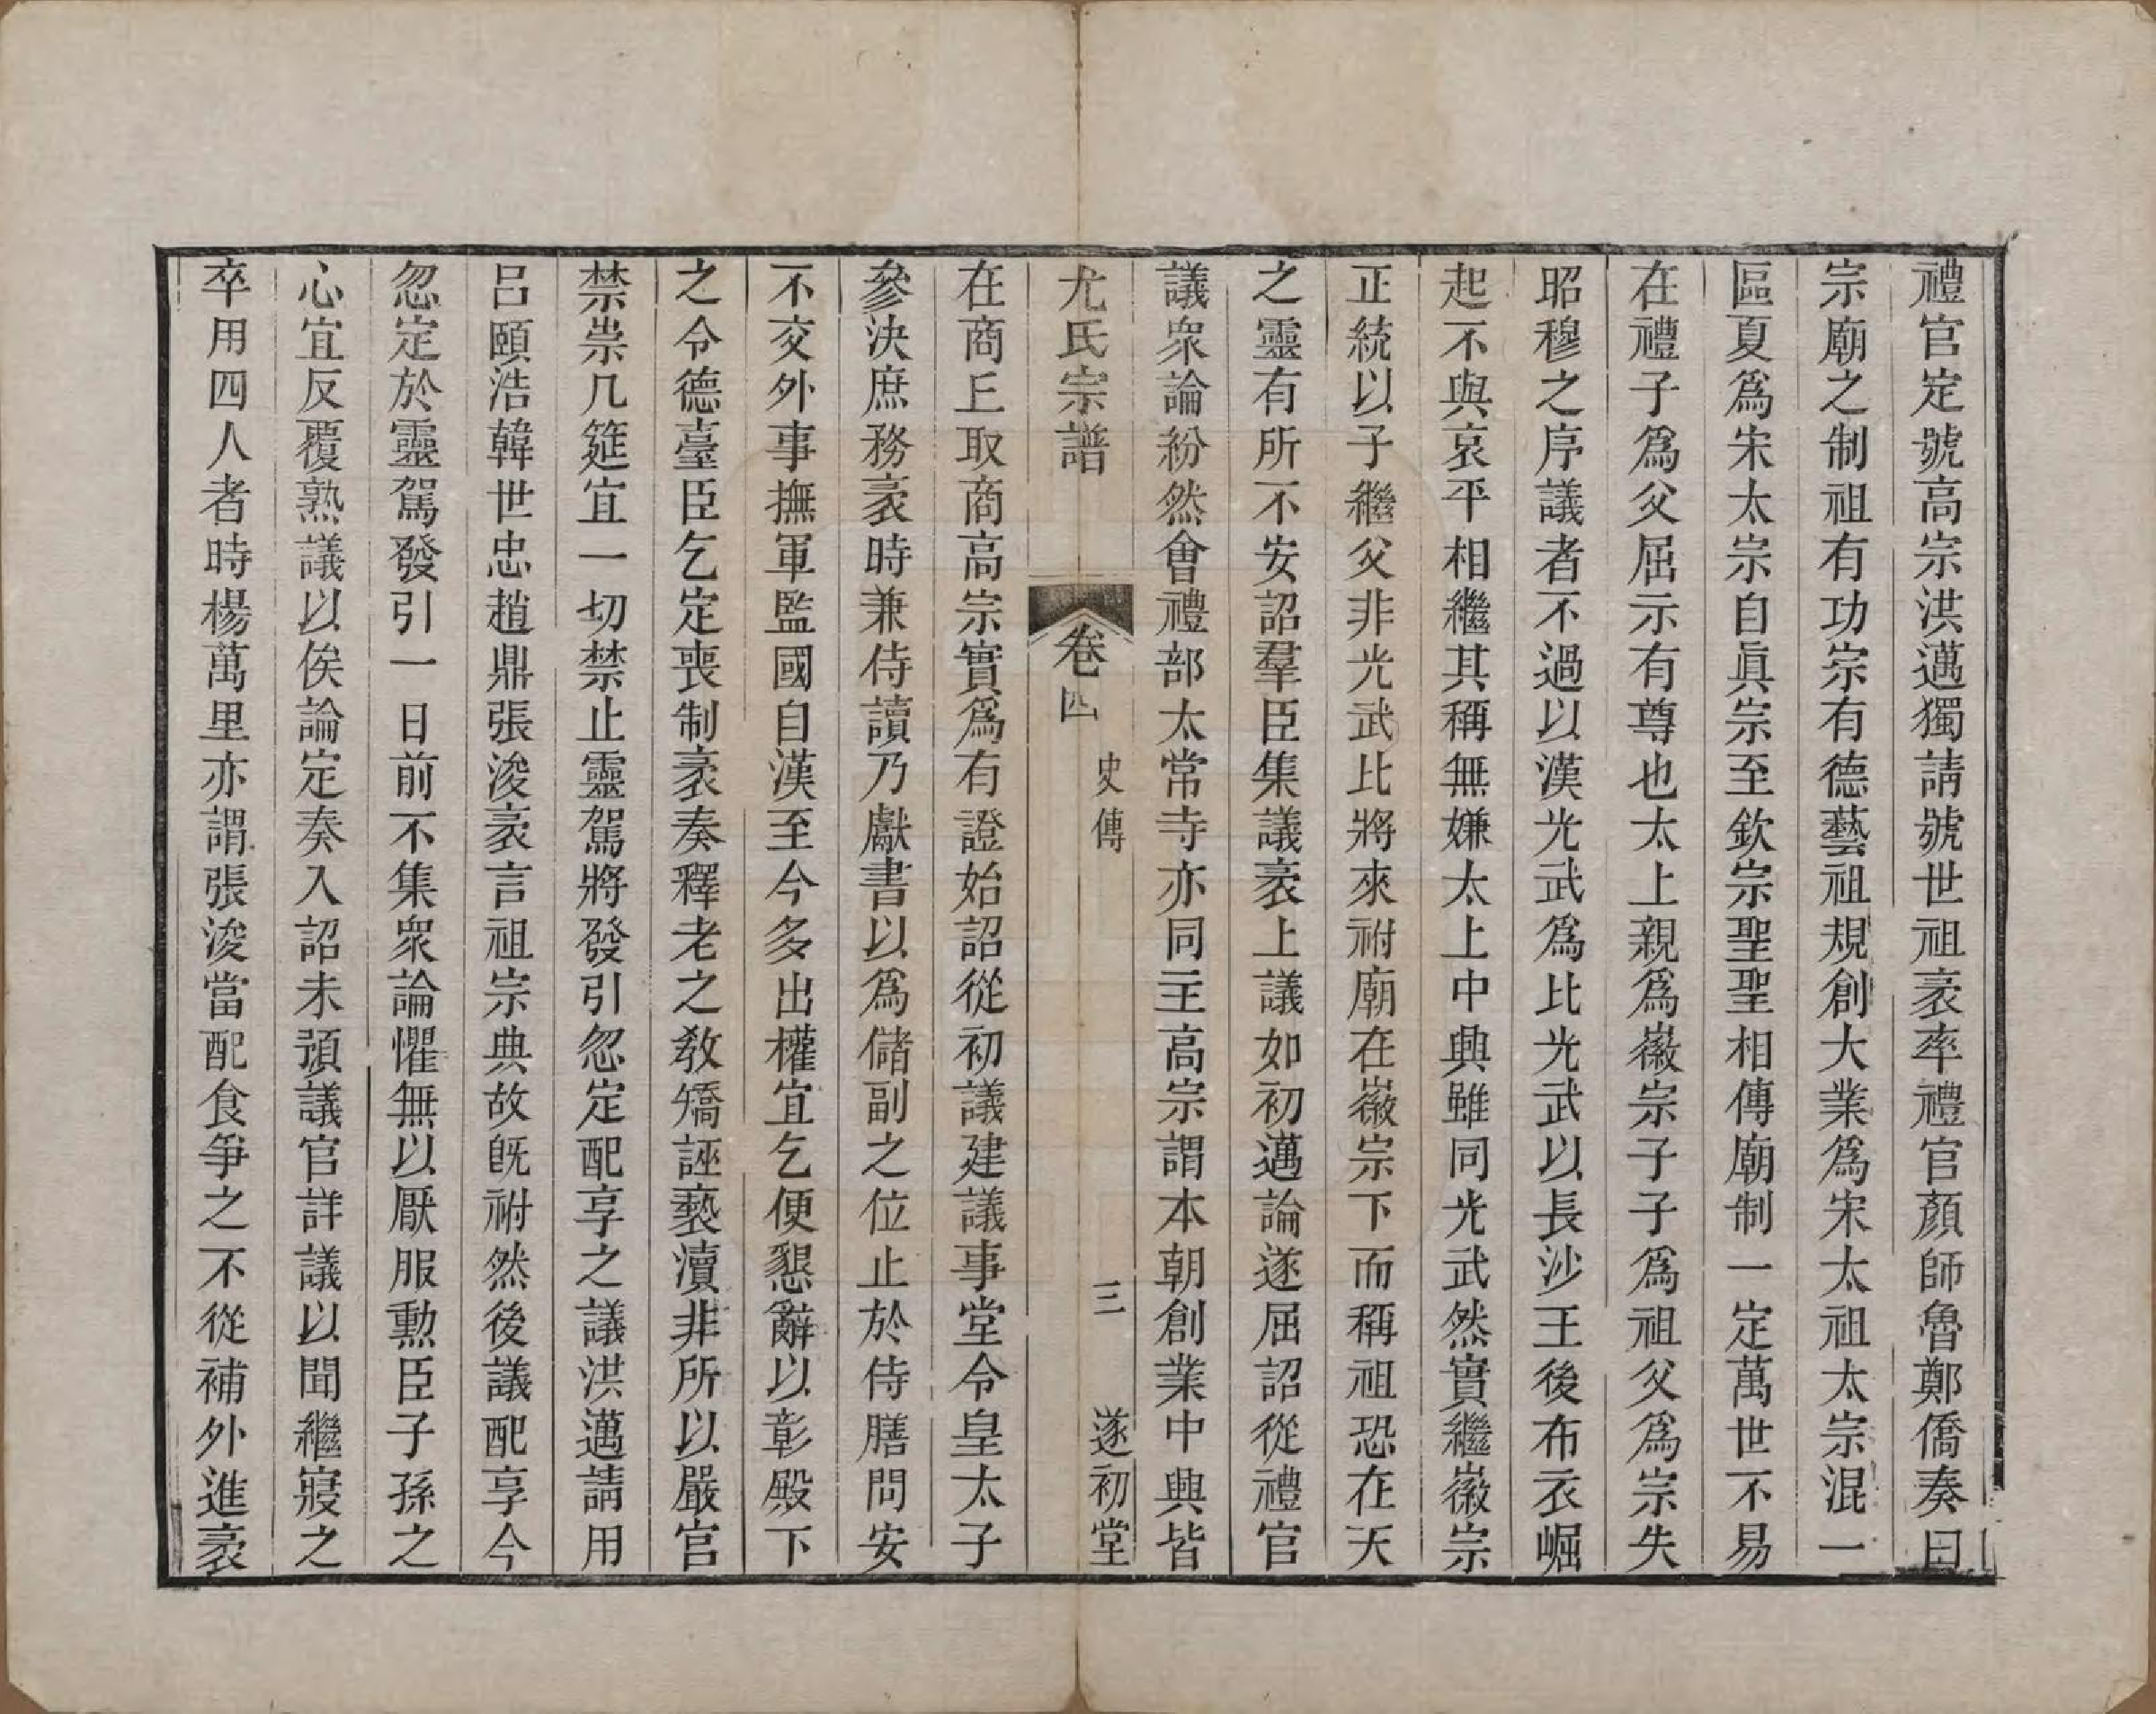 禮官定號高宗洪邁獨請號世祖袤率禮官顏師魯鄭僑奏曰
宗廟之制祖有功宗有德藝祖規創大業爲宋太祖太宗混一
區夏爲宋太宗自眞宗至欽宗聖聖相傳廟制一定萬世不易
在禮子爲父屈示有尊也太上親爲徽宗子子爲祖父爲宗失
昭穆之序議者不過以漢光武爲比光武以長沙王後布衣崛
起不與哀平相繼其稱無嫌太上中興雖同光武然實繼徽宗
正統以子繼父非光武比將來祔廟在徽宗下而稱祖恐在天
之靈有所不安詔羣臣集議袤上議如初邁論遂屈詔從禮官
議衆論紛然會禮部太常寺亦同主高宗謂本朝創業中興皆
尤氏宗譜 卷四 史傳 三 遂初堂
在商丘取商高宗實爲有證始詔從初議建議事堂令皇太子
參決庶務袤時兼侍讀乃獻書以爲儲副之位止於侍膳問安
不交外事撫軍監國自漢至今多出權宜乞便懇辭以彰殿下
之令德臺臣乞定喪制袤奏釋老之敎矯誣褻瀆非所以嚴宮
禁祟几筵宜一切禁止靈駕將發引忽定配享之議洪邁請用
呂頤浩韓世忠趙鼎張浚袤言祖宗典故旣祔然後議配享今
忽定於靈駕發引一日前不集衆論懼無以厭服勲臣子孫之
心宜反覆熟議以俟論定奏入詔未預議官詳議以聞繼寢之
卒用四人者時楊萬里亦謂張浚當配食爭之不從補外進袤